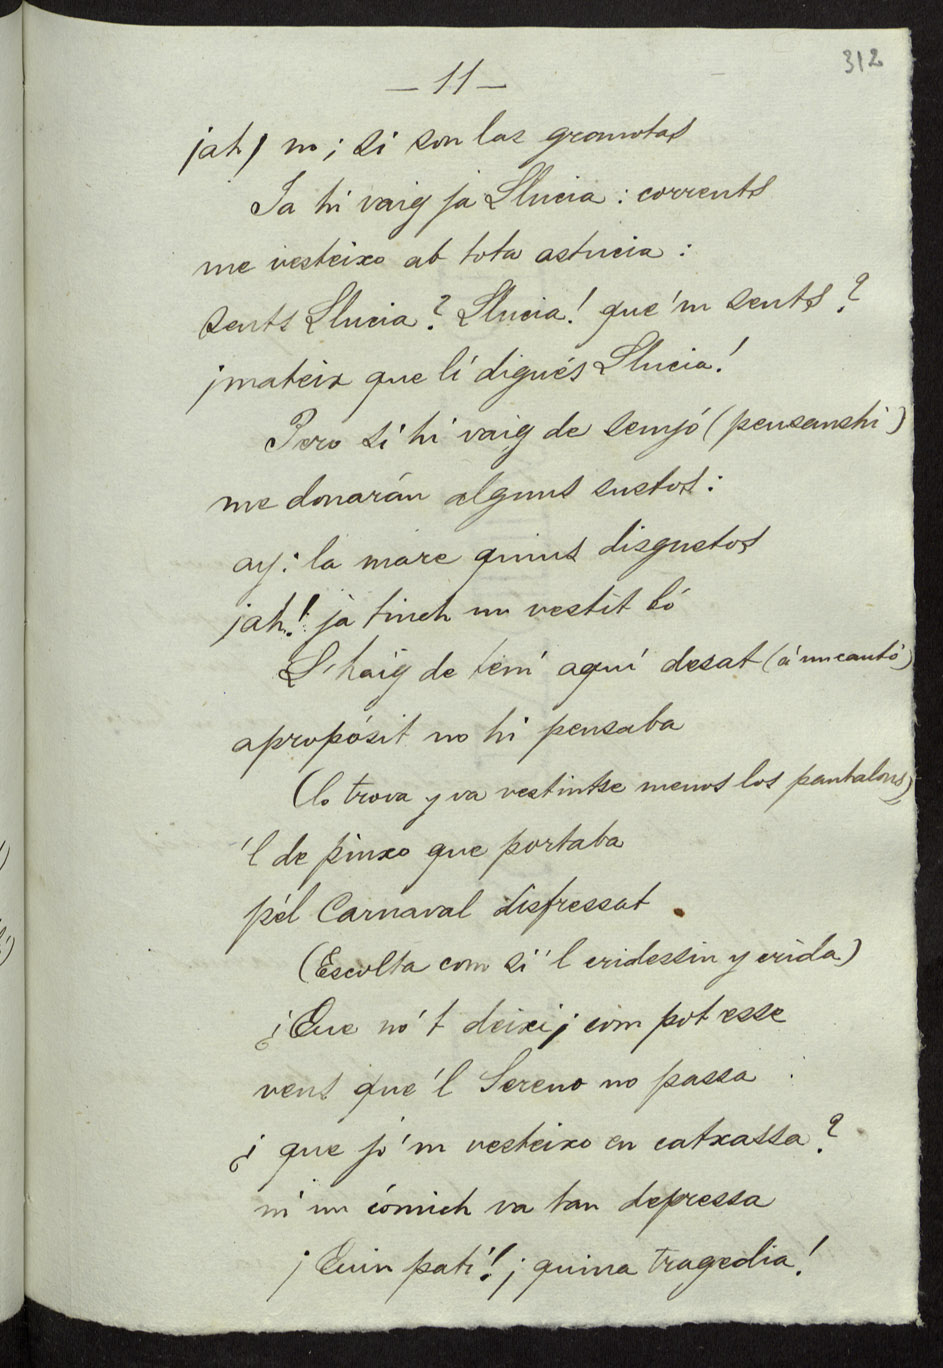 312
— 11 —
¡ah! no; si son las granotas
Ja hi vaig ja Llucia: corrents
me vesteixo ab tota astucia:
sents Llucia? Llucia! que 'm sents?
¡mateix que li digués Llucia!
Pero si hi vaig de semjó (pensanshi)
me donarán alguns sustos:
ay: la mare quins disgustos
¡ah! ja tinch un vestit bó
L' haig de tení aquí desat (á un cantó)
apropósit no hi pensaba
(lo trova y va vestintse menos los pantalons)
'l de pinxo que portaba
pél Carnaval disfressat
(Escolta com si 'l cridessin y crida)
¿Que no 't deixi; com pot esse
veus que 'l Sereno no passa
¿ que jo 'm vesteixo en catxassa?
ni un cómich va tan depressa
¡Quin patí! ¡quina tragedia!